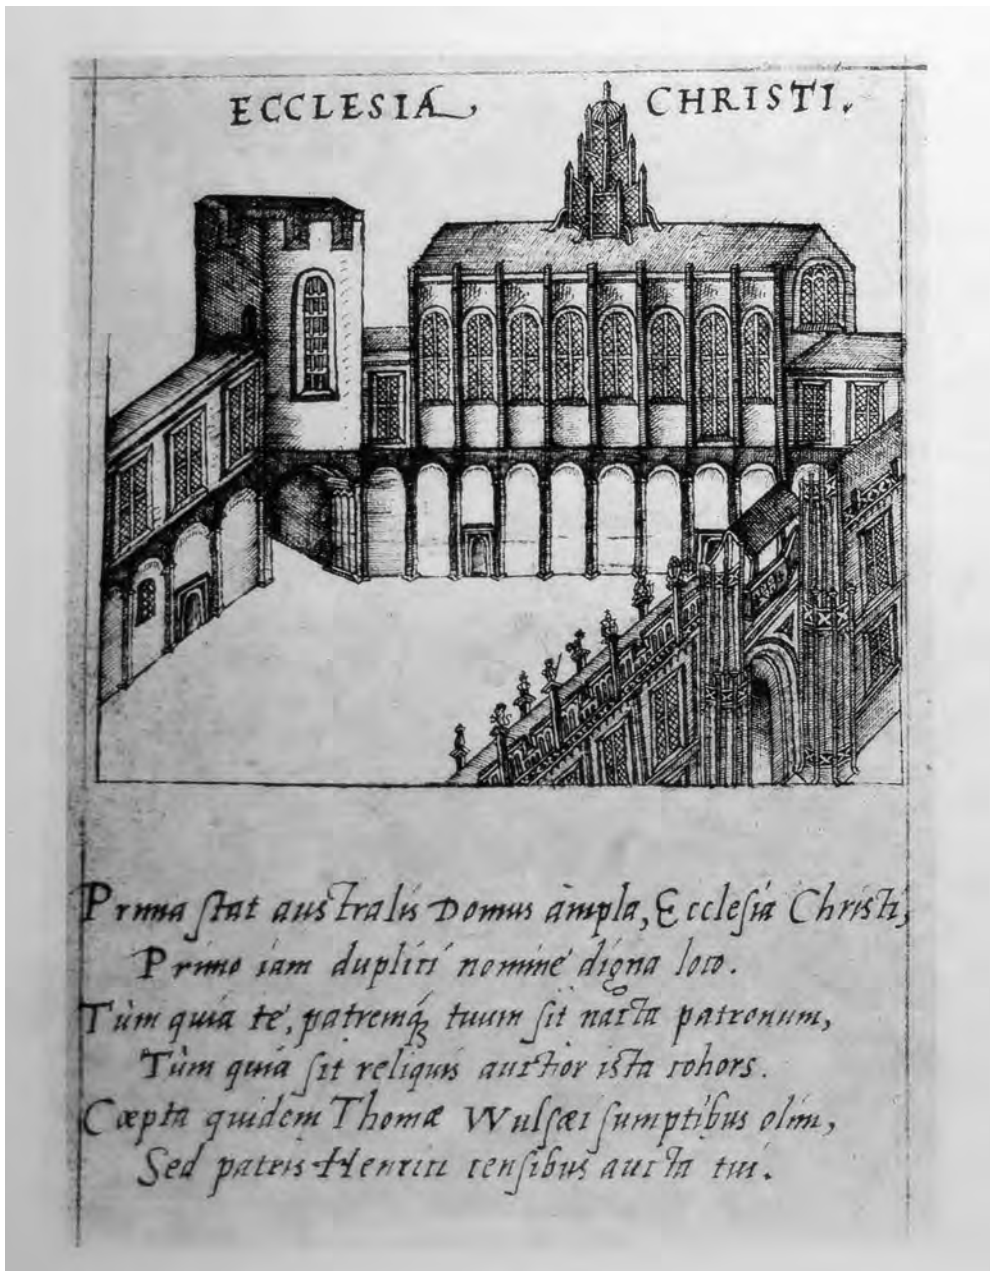 ECCLESIA, CHRISTI.
Prima ſtat auſtralis Domus àmpla, Eccleſia Christi,
Primo iam dupliti nomine digna loco.
Tùm quia te, patremq́ꝫ tuum ſit nacta patronum,
Tùm quia ſit reliquis auctior ista cohors.
Cœpta quidem Thomæ Wulſæi ſumptibus olim,
Sed patris Henrici cenſibus aucta tui.